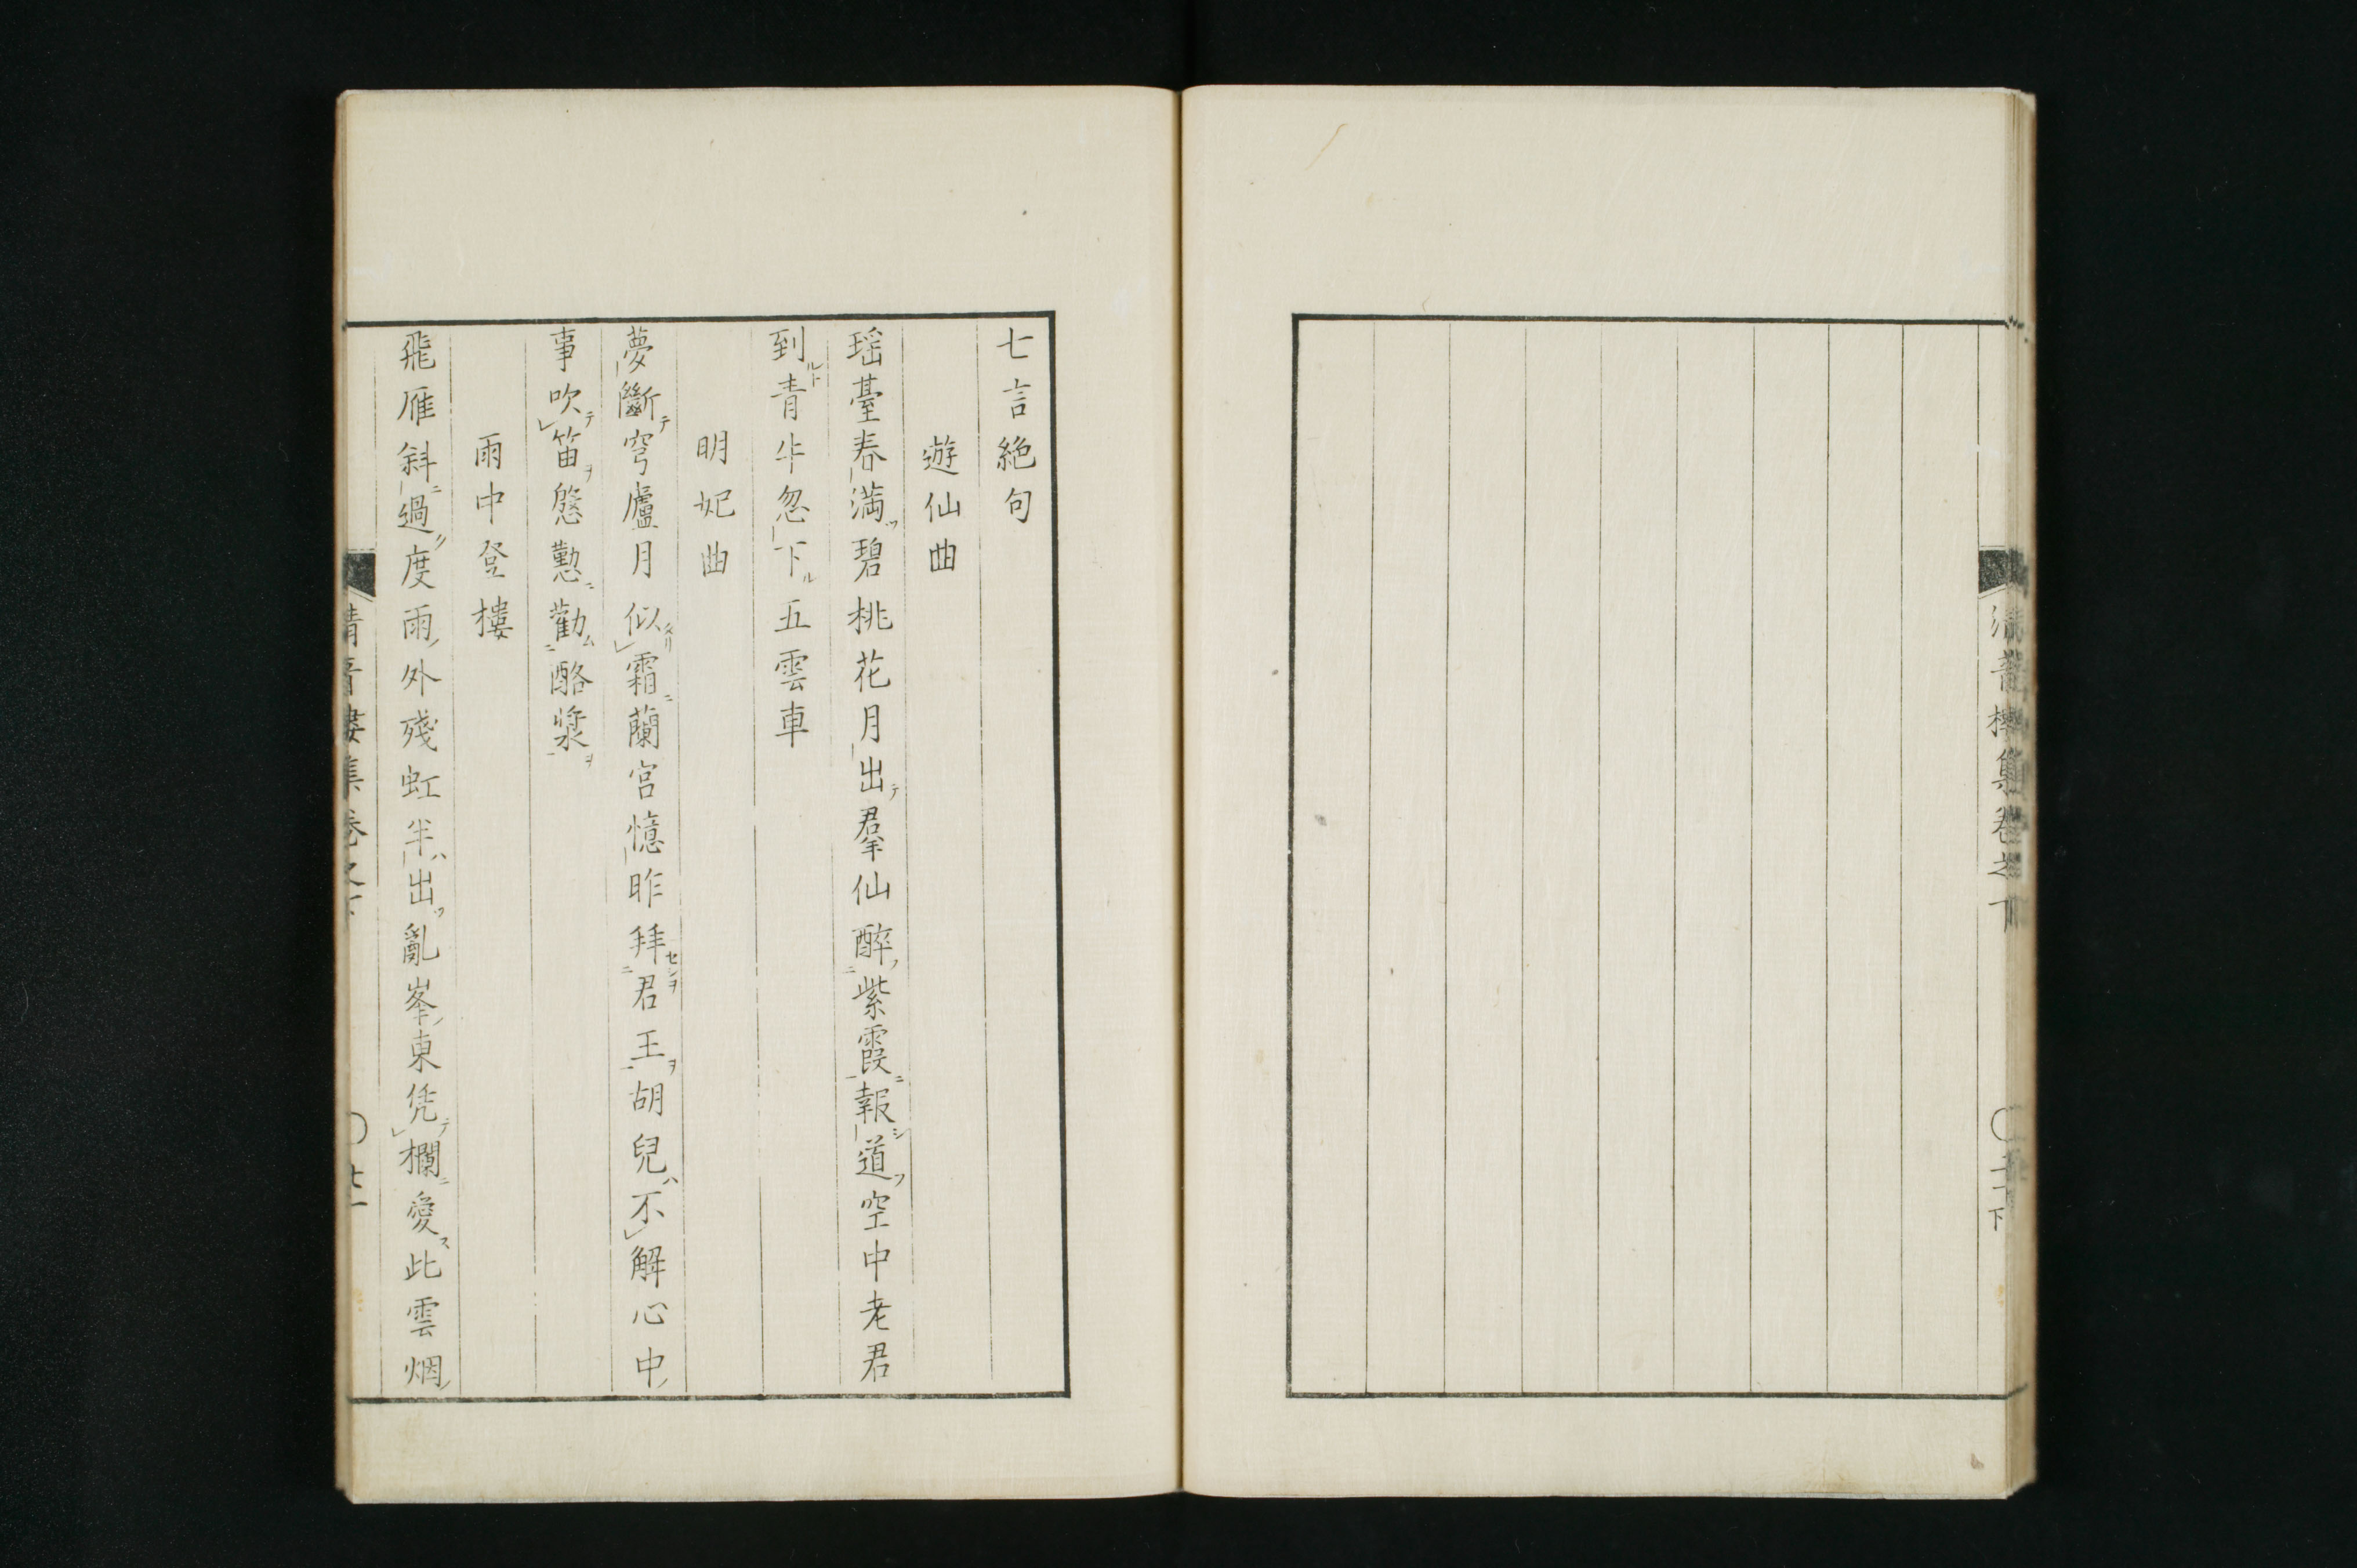 七言絶句
遊仙曲
瑶臺春満碧桃花月出羣仙醉紫霞報道空中老君
到青牛忽下五雲車
明妃曲
夢斷穹廬月似霜蘭宮憶昨拜君王胡兒不解心中
事吹笛慇懃勸酪漿
雨中登樓
飛雁斜過度雨外殘虹半出亂峯東凭欄愛此雲烟
集卷之下